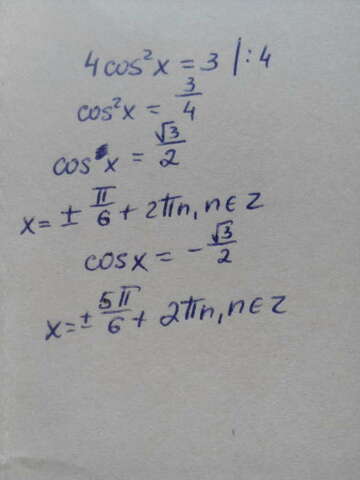 4cos²x = 3 | : 4
cos²x = 3/4
cos x = √3/2
x = ± π/6 + 2πn, n ∈ Z
cosx = - √3/2
x = ± 5π/6 + 2πn, n ∈ Z